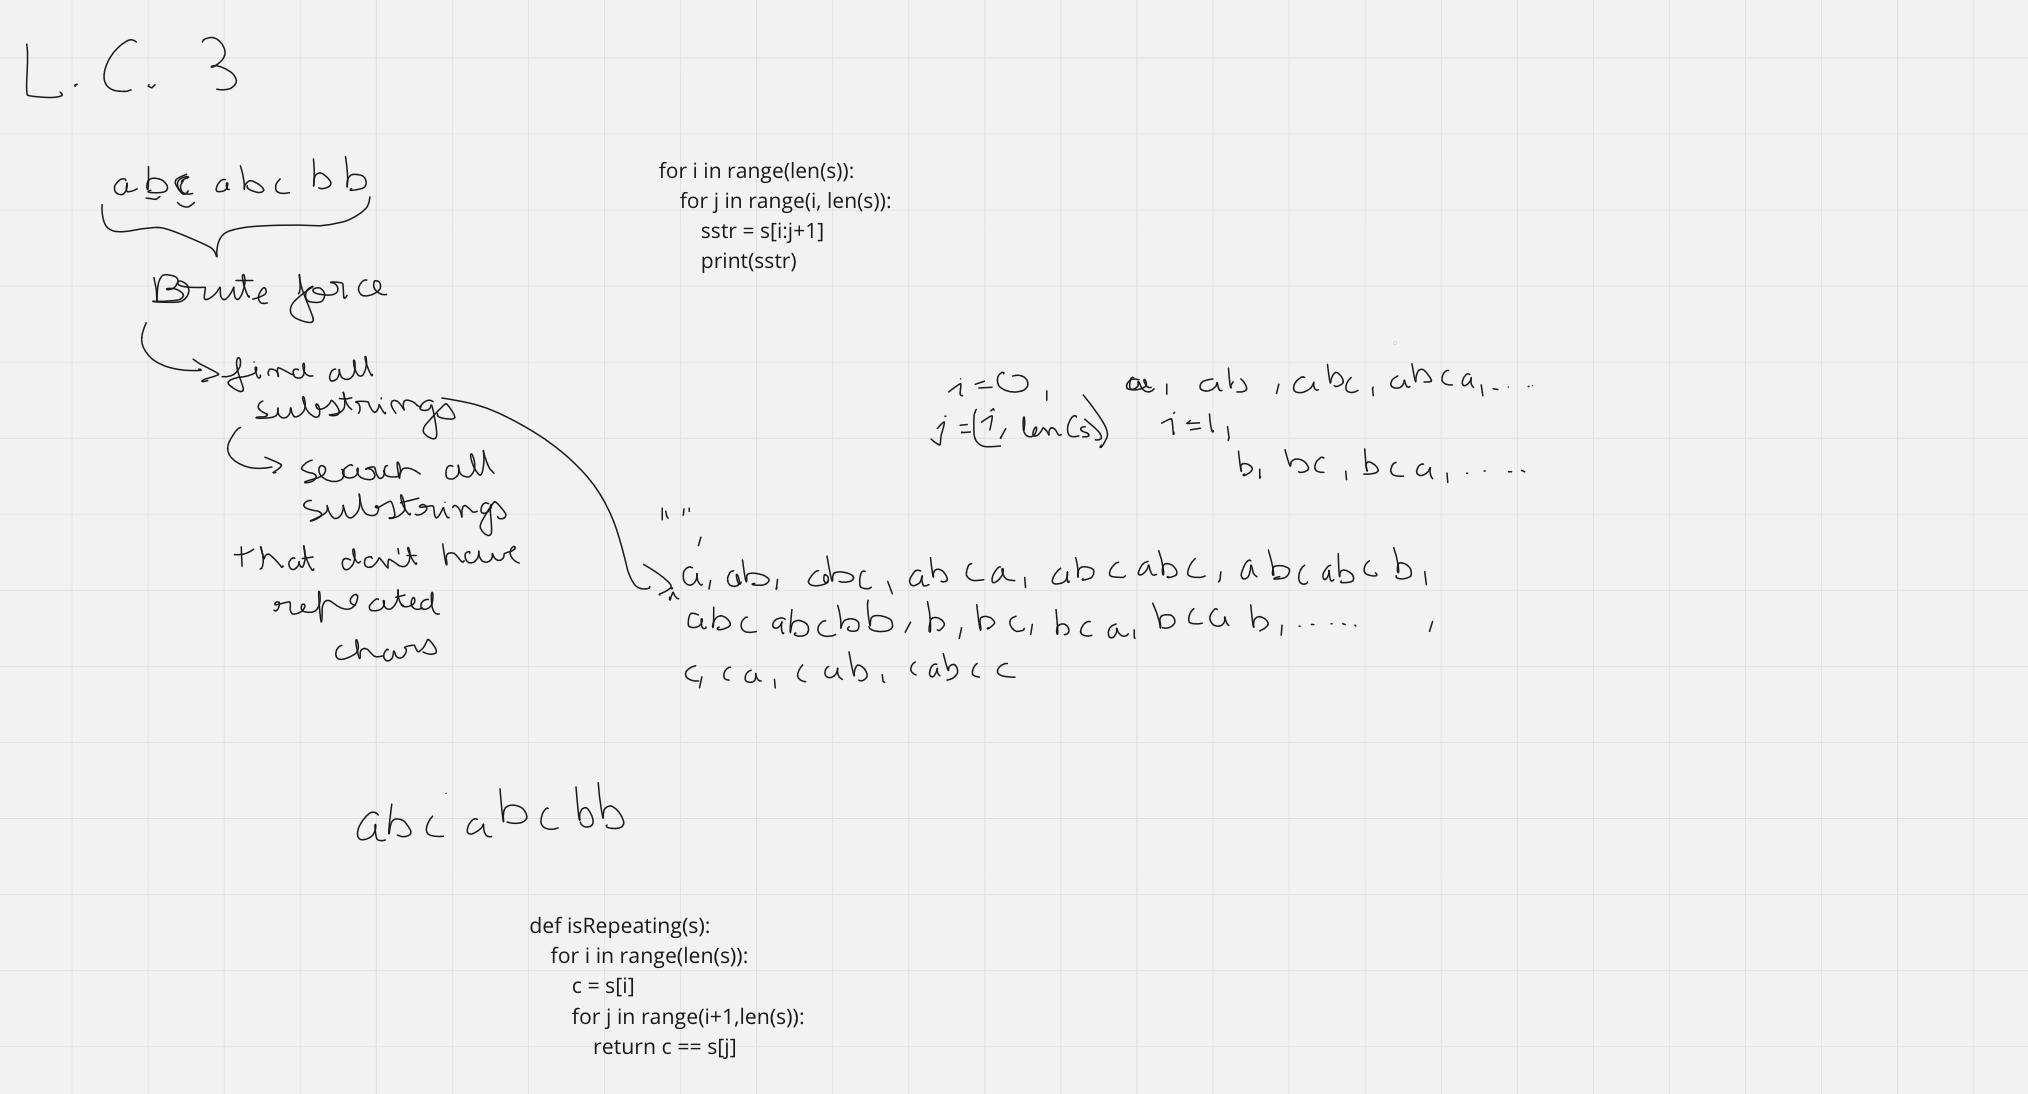 L.C. 3
abc abc bb
Brute force
find all
substrings
search all
substrings
that don't have
repeated
chars
for i in range(len(s)):
for j in range(i, len(s)):
sstr = s[i:j+1]
print(sstr)
i=0, a, ab, abc, abca,....
j=(i, len(s)) i=1,
b, bc, bca, .....
" "
,
a, ab, abc, abca, abcabc, abcabcb,
abcabcbb, b, bc, bca, bcab, ..... ,
c, ca, cab, cabcc
abcabcbb
def isRepeating(s):
for i in range(len(s)):
c = s[i]
for j in range(i+1,len(s)):
return c == s[j]